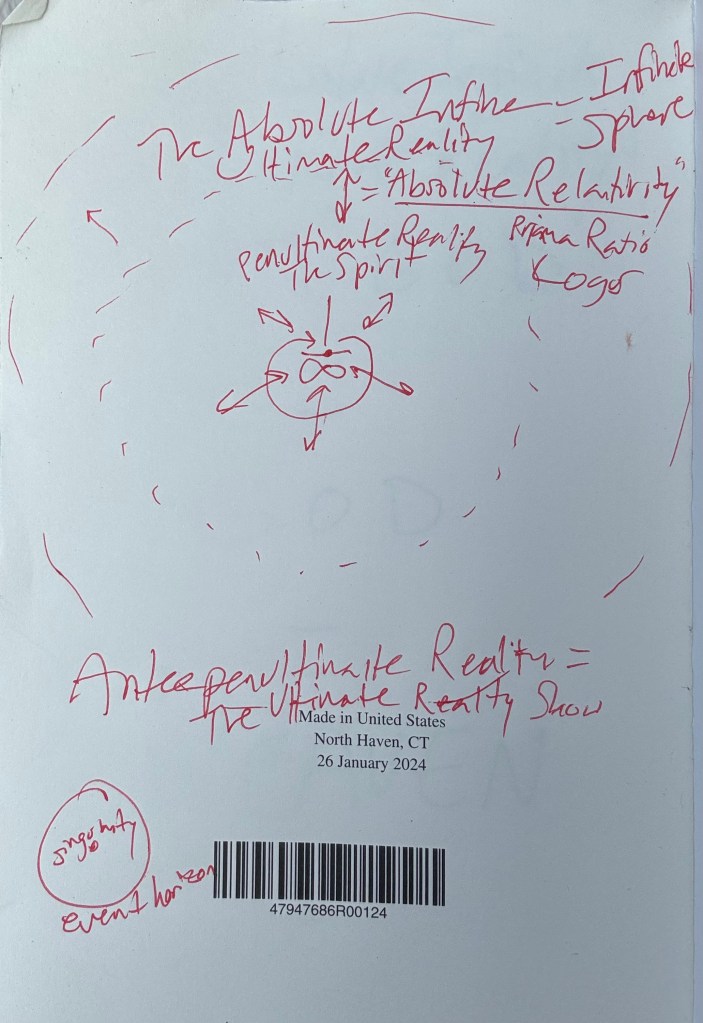 The Absolute Infine = Infinite
Sphere
Ultimate Reality
= "Absolute Relativity"
Penultimate Reality
The Spirit
Ratio
Logos
∞
Antepenultimate Reality =
The Ultimate Reality Show
Made in United States
North Haven, CT
26 January 2024
singularity
event horizon
47947686R00124